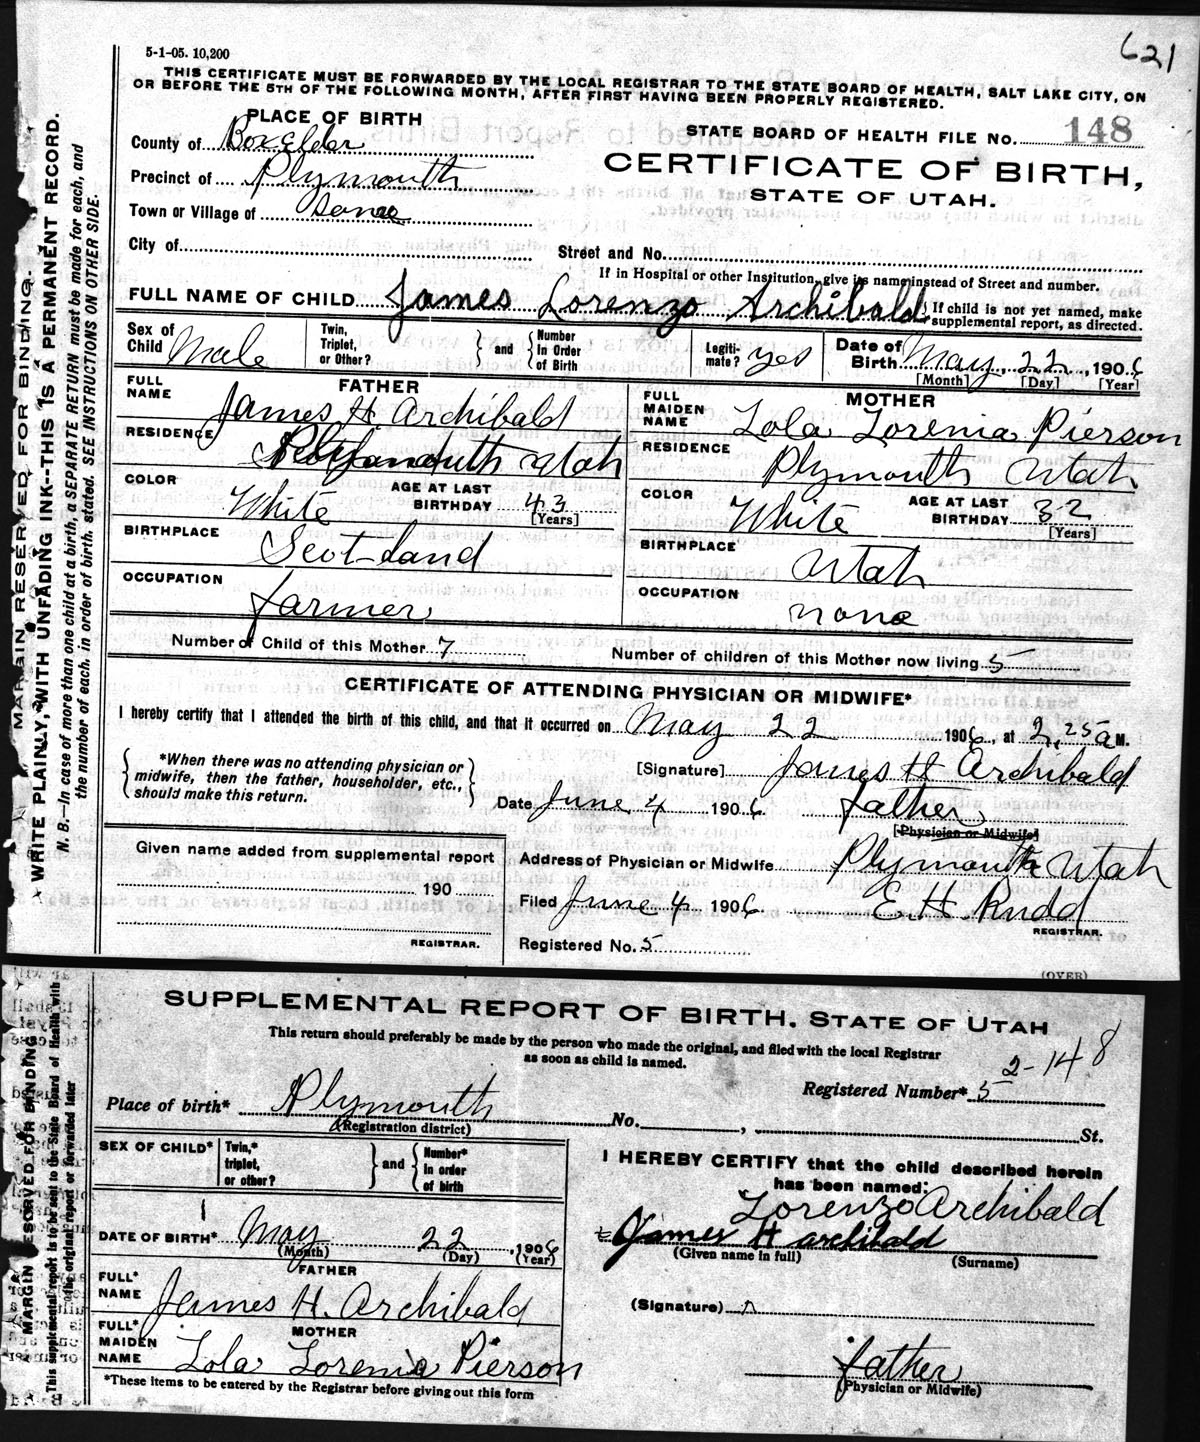 621
5-1-05. 10,200
THIS CERTIFICATE MUST BE FORWARDED BY THE LOCAL REGISTRAR TO THE STATE BOARD OF HEALTH, SALT LAKE CITY, ON
OR BEFORE THE 5TH OF THE FOLLOWING MONTH, AFTER FIRST HAVING BEEN PROPERLY REGISTERED.
MARGIN RESERVED FOR BINDING.
WRITE PLAINLY, WITH UNFADING INK--THIS IS A PERMANENT RECORD.
N. B.—In case of more than one child at a birth, a SEPARATE RETURN must be made for each, and
the number of each, in order of birth, stated. SEE INSTRUCTIONS ON OTHER SIDE.
PLACE OF BIRTH
County of Box Elder
Precinct of Plymouth
Town or Village of Same
City of
STATE BOARD OF HEALTH FILE No. 148
CERTIFICATE OF BIRTH,
STATE OF UTAH.
Street and No.
If in Hospital or other Institution, give its name instead of Street and number.
FULL NAME OF CHILD James Lorenzo Archibald If child is not yet named, make
supplemental report, as directed.
Sex of Child Male Twin, Triplet, or Other? and Number In Order of Birth Legiti-mate? yes Date of Birth May 22 1906
[Month] [Day] [Year]
FATHER
FULL NAME James H Archibald
RESIDENCE Plymouth Utah
COLOR White AGE AT LAST BIRTHDAY 43
[Years]
BIRTHPLACE Scotland
OCCUPATION farmer
MOTHER
FULL MAIDEN NAME Lola Lorenia Pierson
RESIDENCE Plymouth Utah
COLOR White AGE AT LAST BIRTHDAY 32
[Years]
BIRTHPLACE Utah
OCCUPATION none
Number of Child of this Mother 7 Number of children of this Mother now living 5
CERTIFICATE OF ATTENDING PHYSICIAN OR MIDWIFE*
I hereby certify that I attended the birth of this child, and that it occurred on May 22 1906, at 2,25 a M.
*When there was no attending physician or
midwife, then the father, householder, etc.,
should make this return.
[Signature] James H Archibald
Date June 4 1906 father
[Physician or Midwife]
Given name added from supplemental report
190
REGISTRAR.
Address of Physician or Midwife Plymouth Utah
Filed June 4 1906 E. H. Rudd
REGISTRAR.
Registered No. 5
(OVER)
MARGIN RESERVED FOR BINDING
This supplemental report is to be sent to the State Board of Health with
the original report or forwarded later
SUPPLEMENTAL REPORT OF BIRTH. STATE OF UTAH
This return should preferably be made by the person who made the original, and filed with the local Registrar
as soon as child is named.
2-148
Registered Number* 5
Place of birth* Plymouth No. , St.
(Registration district)
SEX OF CHILD* Twin,* triplet, or other? and Number* in order of birth
DATE OF BIRTH* May 22, 1906
(Month) (Day) (Year)
FATHER
FULL* NAME James H. Archibald
MOTHER
FULL* MAIDEN NAME Lola Lorenia Pierson
*These items to be entered by the Registrar before giving out this form
I HEREBY CERTIFY that the child described herein
has been named:
Lorenzo Archibald
James H archibald
(Given name in full) (Surname)
(Signature)
father
(Physician or Midwife)